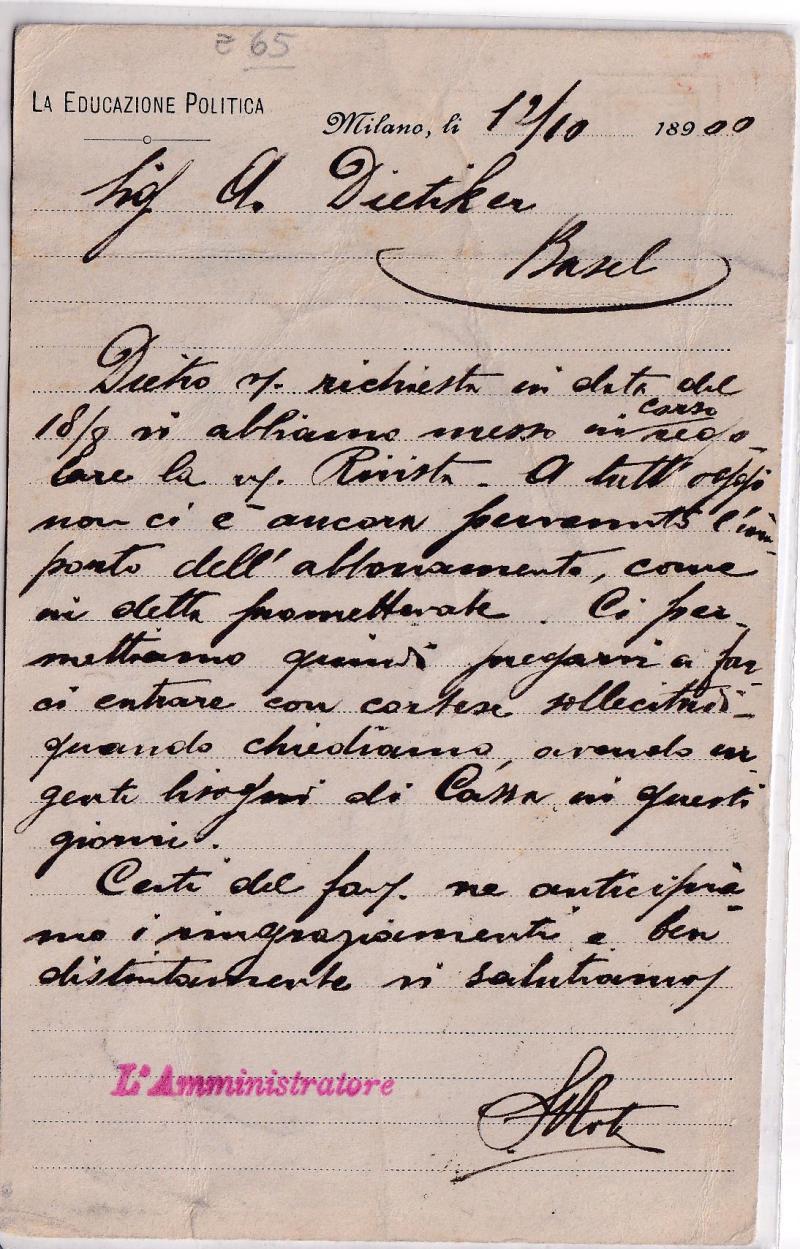 65
LA EDUCAZIONE POLITICA
Milano, li 12/10 18900
Sig A. Dietiker
Basel
Dietro v/. richiesta in data del
18/8 vi abbiamo messo in corso rego-
lare la n/. Rivista. A tutt'oggi
non ci è ancora pervenuto l'im-
porto dell'abbonamento, come
in detta promettevate. Ci per-
mettiamo quindi pregarvi a far
ci entrare con cortese sollecitudi-
quando chiediamo, avendo ur
genti bisogni di Cassa in questi
giorni.
Certi del fav/. ne anticipia-
mo i ringraziamenti e ben
distintamente vi salutiamo/
L'Amministratore